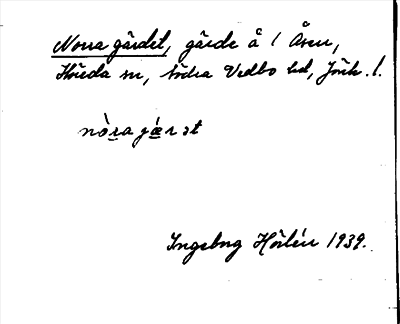 Norra gärdet, gärde å 1 Åsen,
Skirö sn, Södra Vedbo hd, Jönk. l.
nò̱ra jæ̱rət
Ingeborg Hörlén 1939.